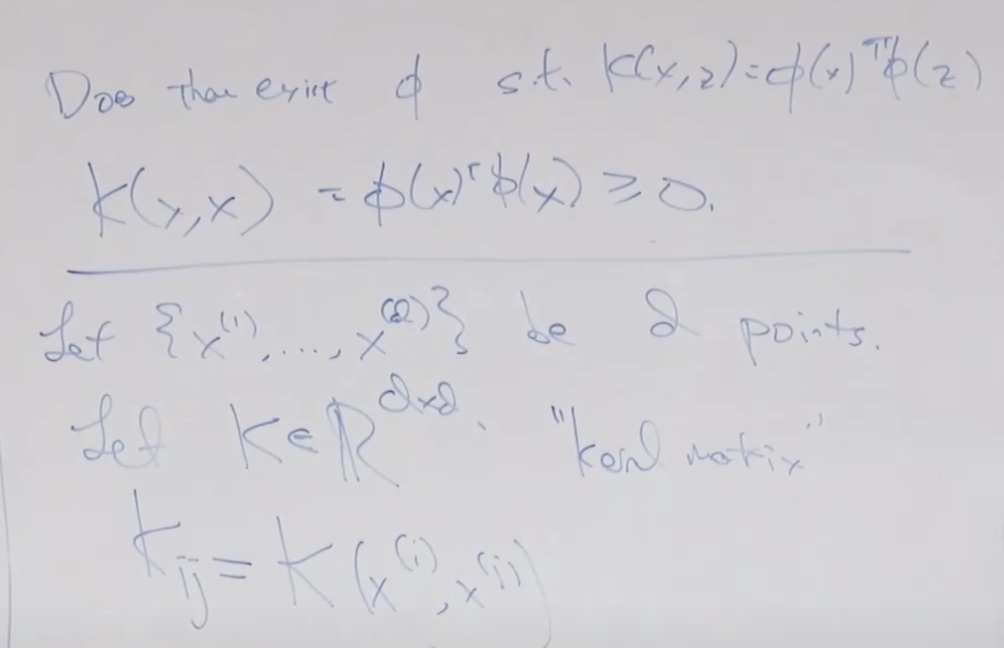 Does there exist ϕ s.t. K(x,z)=ϕ(x)ᵀϕ(z)
K(x,x) = ϕ(x)ᵀϕ(x) ≥ 0.
Let {x⁽¹⁾, ..., x⁽ᵈ⁾} be d points.
Let K ∈ ℝᵈˣᵈ. "Kernel matrix"
Kᵢⱼ = K(x⁽ⁱ⁾, x⁽ʲ⁾)